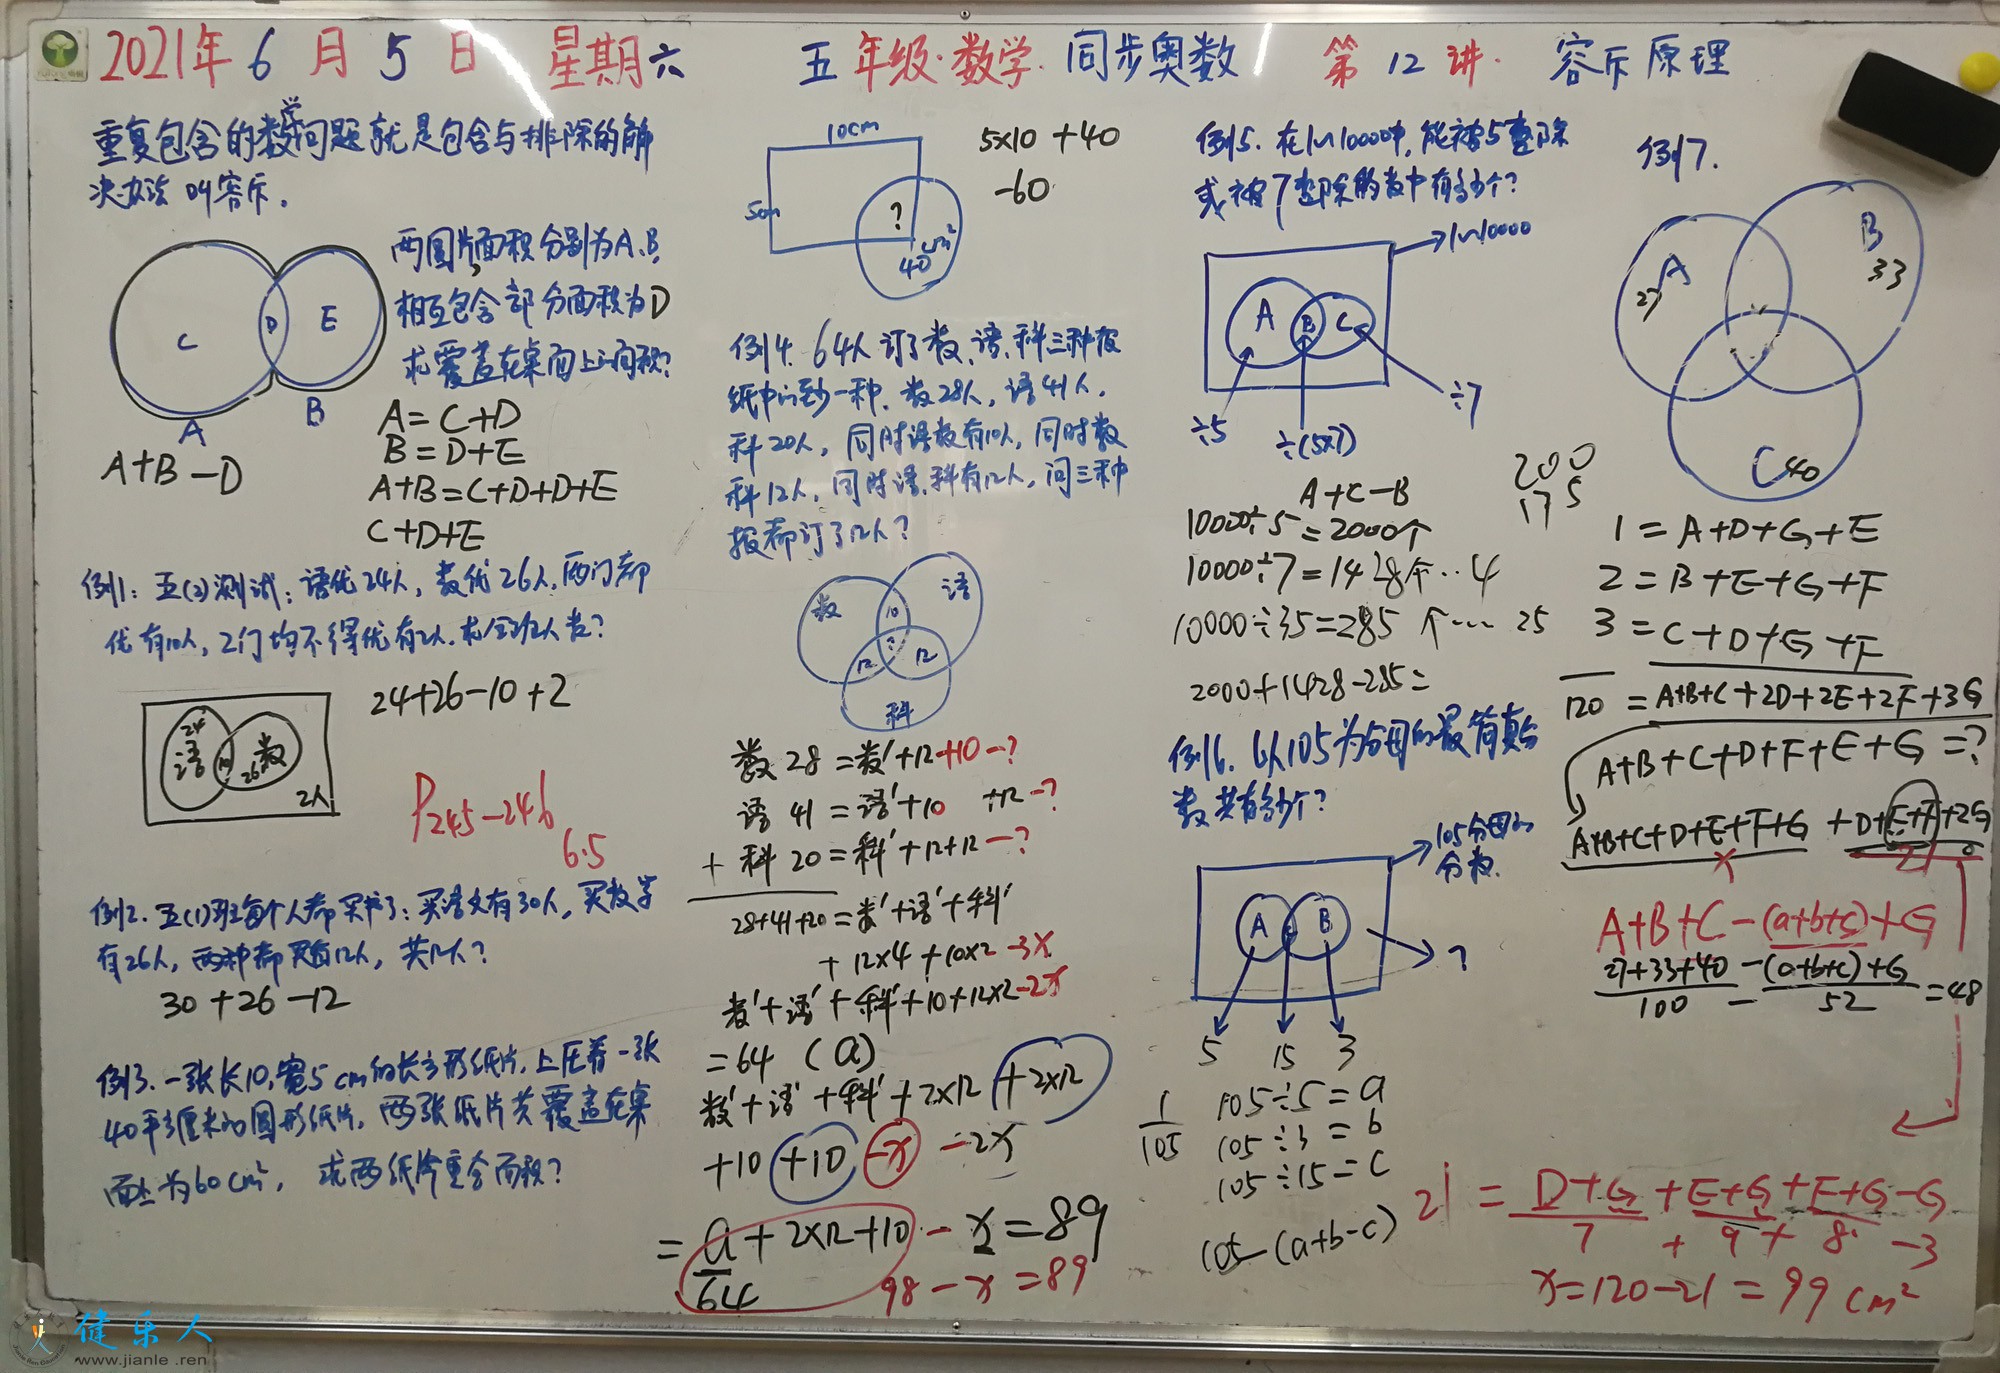 2021年6月5日 星期六 五年级·数学 同步奥数 第12讲. 容斥原理
重复包含的数学问题就是包含与排除的解
决办法 叫容斥.
两圆片面积分别为A.B,
相互包含部分面积为D
求覆盖在桌面上面积?
C D E
A B
A=C+D
B=D+E
A+B-D
A+B=C+D+D+E
C+D+E
例1: 五(2)测试: 语优24人, 数优26人, 两门都
优有10人, 2门均不得优有2人. 求全班人数?
24 语 10 26 数 2人
24+26-10+2
P245-246
6.5
例2. 五(1)班每个人都买书了: 买语文有30人, 买数学
有26人, 两种都买有12人, 共几人?
30+26-12
例3. 一张长10, 宽5cm的长方形纸片, 上压着一张
40平方厘米的圆形纸片, 两张纸片共覆盖在桌
面上为60cm², 求两纸片重合面积?
10cm
5cm
?
40cm²
5x10+40
-60
例4. 64人订了数、语、科三种报
纸中的至少一种. 数28人, 语41人,
科20人, 同时语数有10人, 同时数
科12人, 同时语、科有12人, 问三种
报都订了几人?
数 10 语
12 ? 12
科
数 28=数'+12+10-?
语 41=语'+10+12-?
+ 科 20=科'+12+12-?
28+41+20=数'+语'+科'
+12x4+10x2-3x
数'+语'+科'+10+12x2-2x
=64 (a)
数'+语'+科'+2x12+2x12
+10+10-x-2x
=a+2x12+10-x=89
64 98-x=89
例5. 在1~10000中, 能被5整除
或被7整除的数中有多少个?
1~10000
A B C
÷5 ÷(5x7) ÷7
A+C-B
10000÷5=2000个
10000÷7=1428个··4
10000÷35=285个···25
2000+1428-285=
200
175
例6. 以105为分母的最简真分
数共有多少个?
105分母的
分数.
A B ?
5 15 3
1/105
105÷5=a
105÷3=b
105÷15=c
105-(a+b-c)
例7.
A 27
B 33
C 40
1=A+D+G+E
2=B+E+G+F
3=C+D+G+F
120=A+B+C+2D+2E+2F+3G
A+B+C+D+F+E+G=?
A+B+C+D+E+F+G+D+E+F+2G
x 21
A+B+C-(a+b+c)+G
27+33+40-(a+b+c)+G
100-52=48
21=D+G+E+G+F+G-G
7+9+8-3
x=120-21=99cm²
健乐人
www.jianle.ren